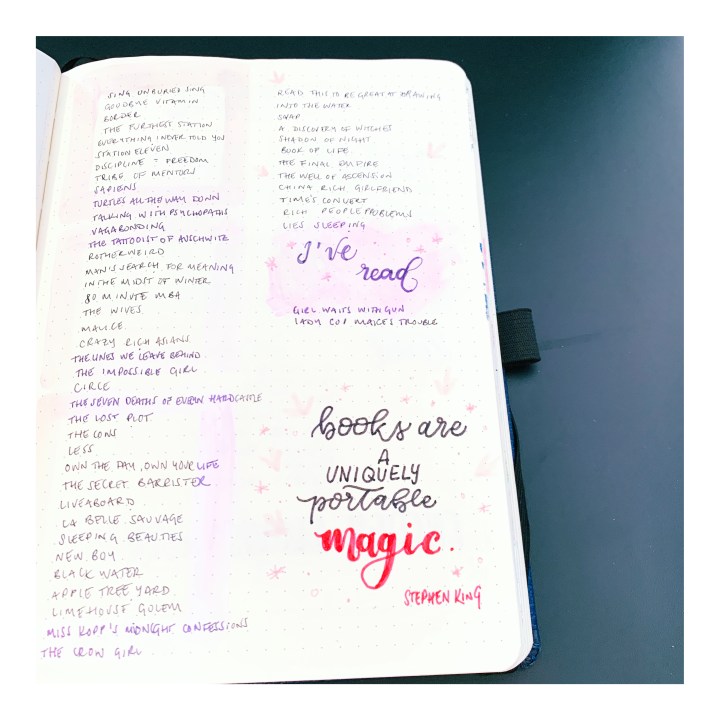 SING UNBURIED SING
GOODBYE VITAMIN
BORDER
THE FURTHEST STATION
EVERYTHING I NEVER TOLD YOU
STATION ELEVEN
DISCIPLINE = FREEDOM
TRIBE OF MENTORS
SAPIENS
TURTLES ALL THE WAY DOWN
TALKING WITH PSYCHOPATHS
VAGABONDING
THE TATTOOIST OF AUSCHWITZ
ROTHERWEIRD
MAN'S SEARCH FOR MEANING
IN THE MIDST OF WINTER
80 MINUTE MBA
THE WIVES
MALICE
CRAZY RICH ASIANS
THE LINES WE LEAVE BEHIND
THE IMPOSSIBLE GIRL
CIRCE
THE SEVEN DEATHS OF EVELYN HARDCASTLE
THE LOST PLOT
THE CONS
LESS
OWN THE DAY, OWN YOUR LIFE
THE SECRET BARRISTER
LIVEABOARD
LA BELLE SAUVAGE
SLEEPING BEAUTIES
NEW BOY
BLACK WATER
APPLE TREE YARD
LIMEHOUSE GOLEM
MISS KOPP'S MIDNIGHT CONFESSIONS
THE CROW GIRL
READ THIS TO BE GREAT AT DRAWING
INTO THE WATER
SNAP
A DISCOVERY OF WITCHES
SHADOW OF NIGHT
BOOK OF LIFE
THE FINAL EMPIRE
THE WELL OF ASCENSION
CHINA RICH GIRLFRIEND
TIME'S CONVERT
RICH PEOPLE PROBLEMS
LIES SLEEPING
I've
read
GIRL WAITS WITH GUN
LADY COP MAKES TROUBLE
books are
A
UNIQUELY
portable
magic.
STEPHEN KING